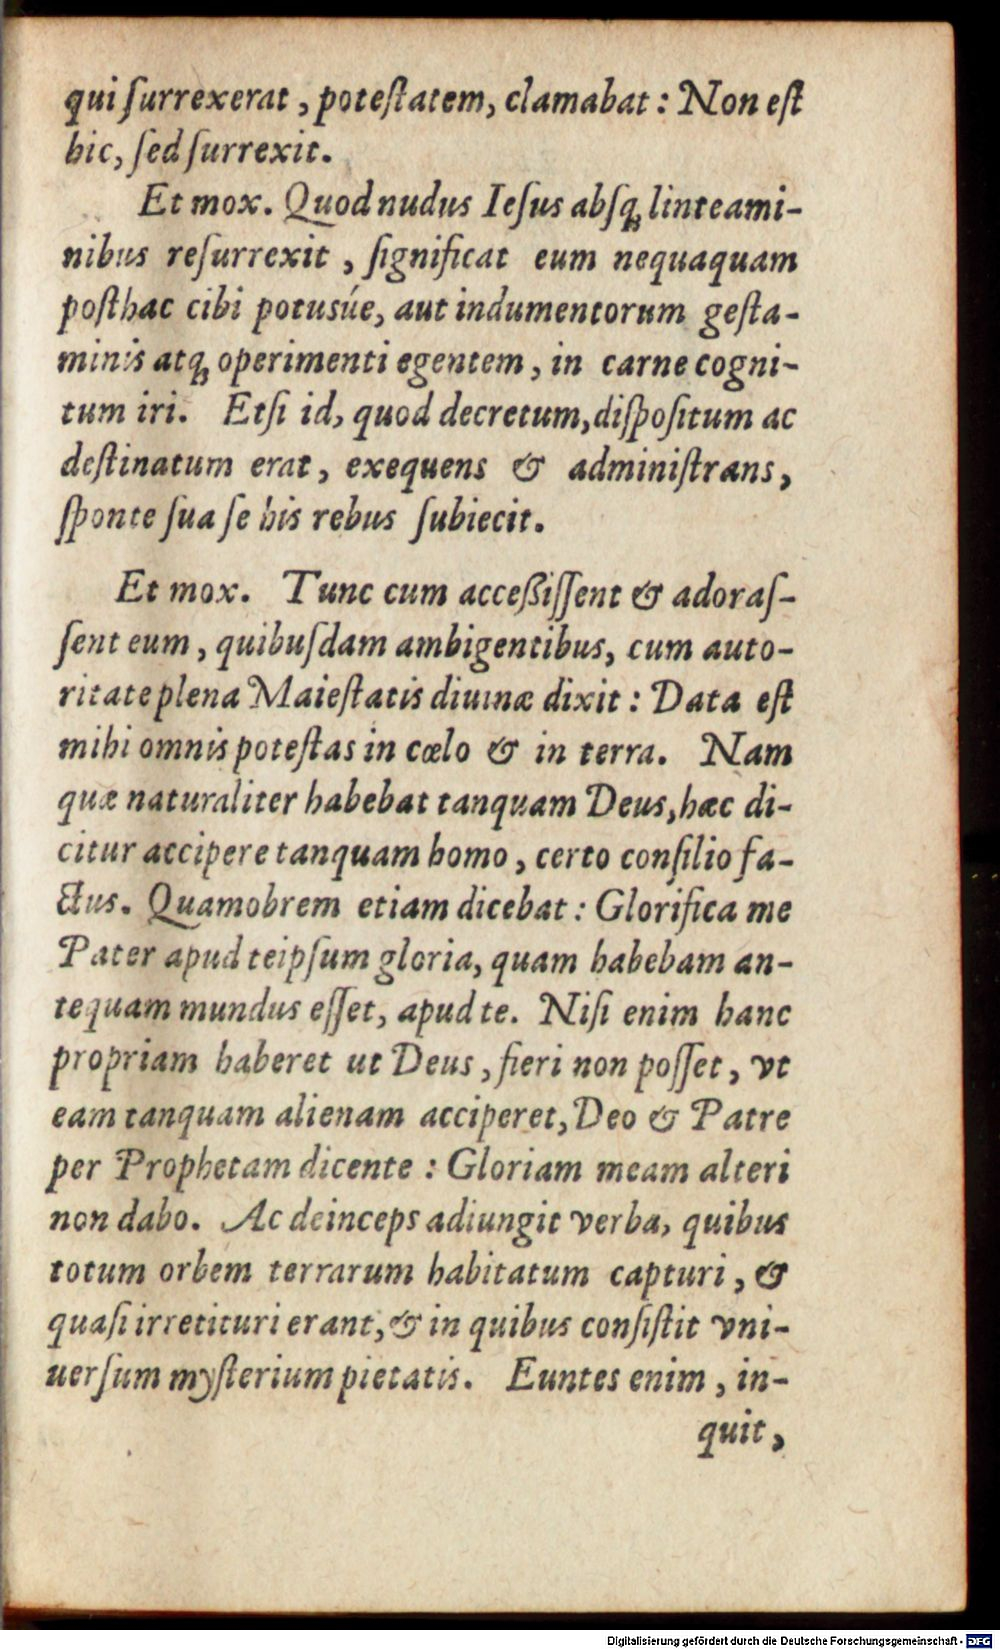 qui ſurrexerat, poteſtatem, clamabat: Non eſt
hic, ſed ſurrexit.
Et mox. Quod nudus Ieſus abſq́ linteami-
nibus reſurrexit, ſignificat eum nequaquam
poſthac cibi potusúe, aut indumentorum geſta-
minis atq́ operimenti egentem, in carne cogni-
tum iri. Etſi id, quod decretum, diſpoſitum ac
deſtinatum erat, exequens & adminiſtrans,
ſponte ſua ſe his rebus ſubiecit.
Et mox. Tunc cum acceßiſſent & adoraſ-
ſent eum, quibuſdam ambigentibus, cum auto-
ritate plena Maieſtatis diuinæ dixit: Data eſt
mihi omnis poteſtas in cœlo & in terra. Nam
quæ naturaliter habebat tanquam Deus, hæc di-
citur accipere tanquam homo, certo conſilio fa-
ctus. Quamobrem etiam dicebat: Glorifica me
Pater apud teipſum gloria, quam habebam an-
tequam mundus eſſet, apud te. Niſi enim hanc
propriam haberet ut Deus, fieri non poſſet, vt
eam tanquam alienam acciperet, Deo & Patre
per Prophetam dicente: Gloriam meam alteri
non dabo. Ac deinceps adiungit verba, quibus
totum orbem terrarum habitatum capturi, &
quaſi irretituri erant, & in quibus conſiſtit vni-
uerſum myſterium pietatis. Euntes enim, in-
quit,
Digitalisierung gefördert durch die Deutsche Forschungsgemeinschaft - DFG